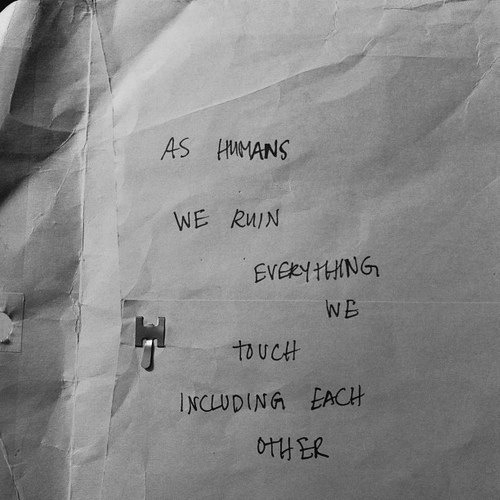 AS HUMANS
WE RUIN
EVERYTHING
WE
TOUCH
INCLUDING EACH
OTHER